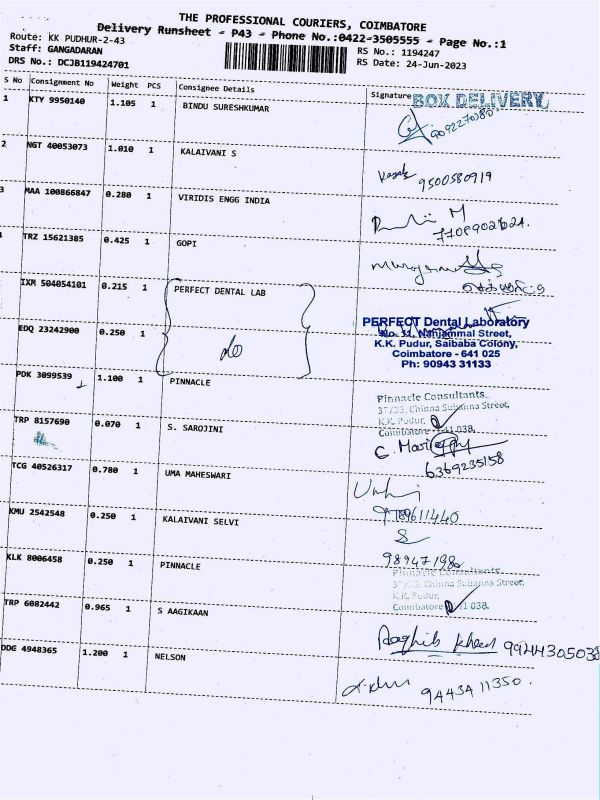 THE PROFESSIONAL COURIERS, COIMBATORE
Delivery Runsheet - P43 - Phone No.:0422-3505555 - Page No.:1
Route: KK PUDHUR-2-43
Staff: GANGADARAN
RS No.: 1194247
DRS No.: DCJB119424701
RS Date: 24-Jun-2023
S No Consignment No Weight PCS Consignee Details Signature
BOX DELIVERY
1 KTY 9950140 1.105 1 BINDU SURESHKUMAR
2 NGT 40053073 1.010 1 KALAIVANI S
9500580919
3 MAA 100866847 0.280 1 VIRIDIS ENGG INDIA
M
4 TRZ 15621385 0.425 1 GOPI
IXM 504054101 0.215 1 PERFECT DENTAL LAB
EDQ 23242900 0.250 1 do
PERFECT Dental Laboratory
No. 11, Nanjammal Street,
K.K. Pudur, Saibaba Colony,
Coimbatore - 641 025
Ph: 90943 31133
PDK 3099539 1.100 1 PINNACLE
Pinnacle Consultants
37/33, Chinna Subanna Street,
K.K. Pudur,
Coimbatore 038.
TRP 8157690 0.070 1 S. SAROJINI
6369235158
TCG 40526317 0.780 1 UMA MAHESWARI
9789611440
KMU 2542548 0.250 1 KALAIVANI SELVI
KLK 8006458 0.250 1 PINNACLE
Pinnacle Consultants
37/33, Chinna Subanna Street,
K.K. Pudur,
Coimbatore 038.
TRP 6082442 0.965 1 S AAGIKAAN
DDC 4948365 1.200 1 NELSON
9443411350